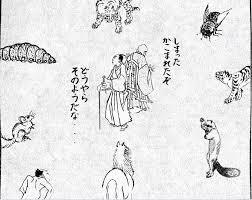 しまった
かこまれたぞ
どうやら
そのようだな・・